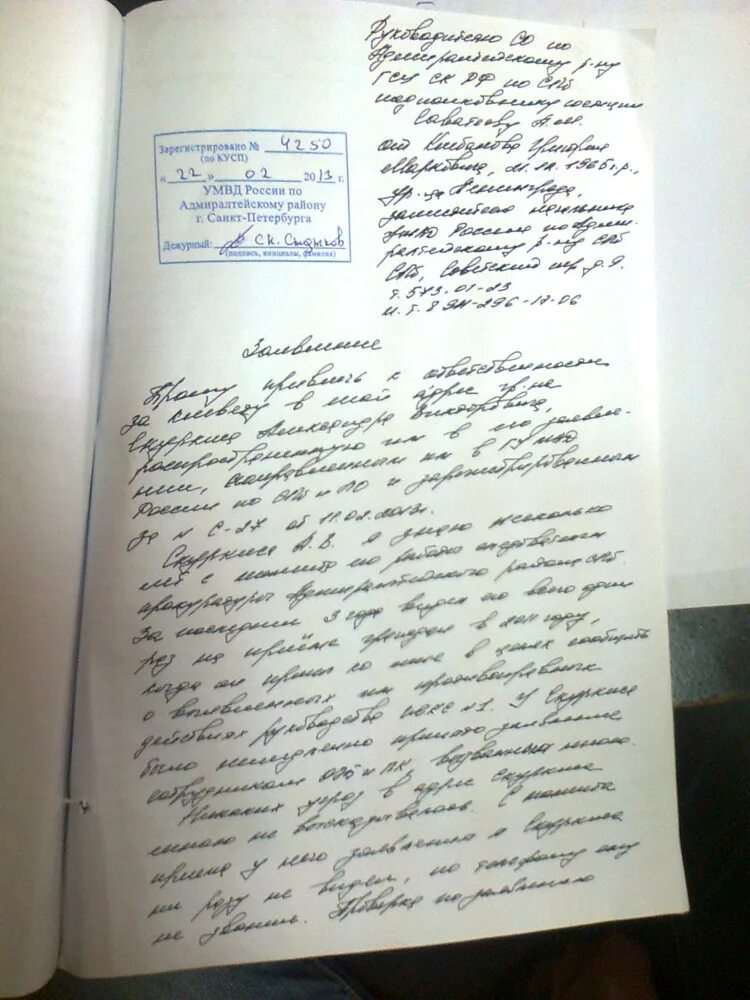 Руководителю СО по
Адмиралтейскому р-ну
ГСУ СК РФ по СПб
подполковнику юстиции
Саватееву А.М.
Зарегистрировано № 4250
(по КУСП)
« 22 » 02 2013 г.
УМВД России по
Адмиралтейскому району
г. Санкт-Петербурга
Дежурный: С.К.
(подпись, инициалы, фамилия)
от Григория
Марковича, 1965 г.р.,
ур-ца Ленинграда,
заместителя начальника
России по Адми-
ралтейскому р-ну СПб
СПб, Советский пр. д. 9.
т. 573-01-23
м.т. 8 911-296-17-06
Заявление
Прошу привлечь к ответственности
за клевету в мой адрес гр-на
Скуркиса Александра Викторовича,
распространенную им в его заявле-
нии, направленным им в ГУ МВД
России по СПб и ЛО и зарегистрированным
за № С-27 от 11.02.2013г.
Скуркиса А.В. я знаю несколько
лет с момента по работе следственным
прокуратуры Адмиралтейского района СПб
За последние 3 года видел его всего один
раз на приёме граждан в 2011 году,
когда он пришел ко мне в целях сообщить
о выявленных им противоправных
действиях руководства №1. У Скуркиса
было немедленно принято заявление
сотрудником ОЭБ и ПК, вызванным мною.
Никаких угроз в адрес Скуркиса
мною не высказывалось. С момента
приема у него заявления я Скуркиса
ни разу не видел, по телефону ему
не звонил. Проверка по заявлению